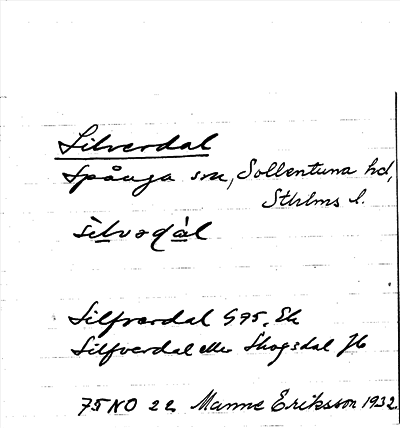 Silverdal
Spånga sn, Sollentuna hd,
Sthlms l.
silvədàl
Silfverdal G95, Ek
Silfverdal eller Skogsdal Jb
75 NO 2e Manne Eriksson 1932